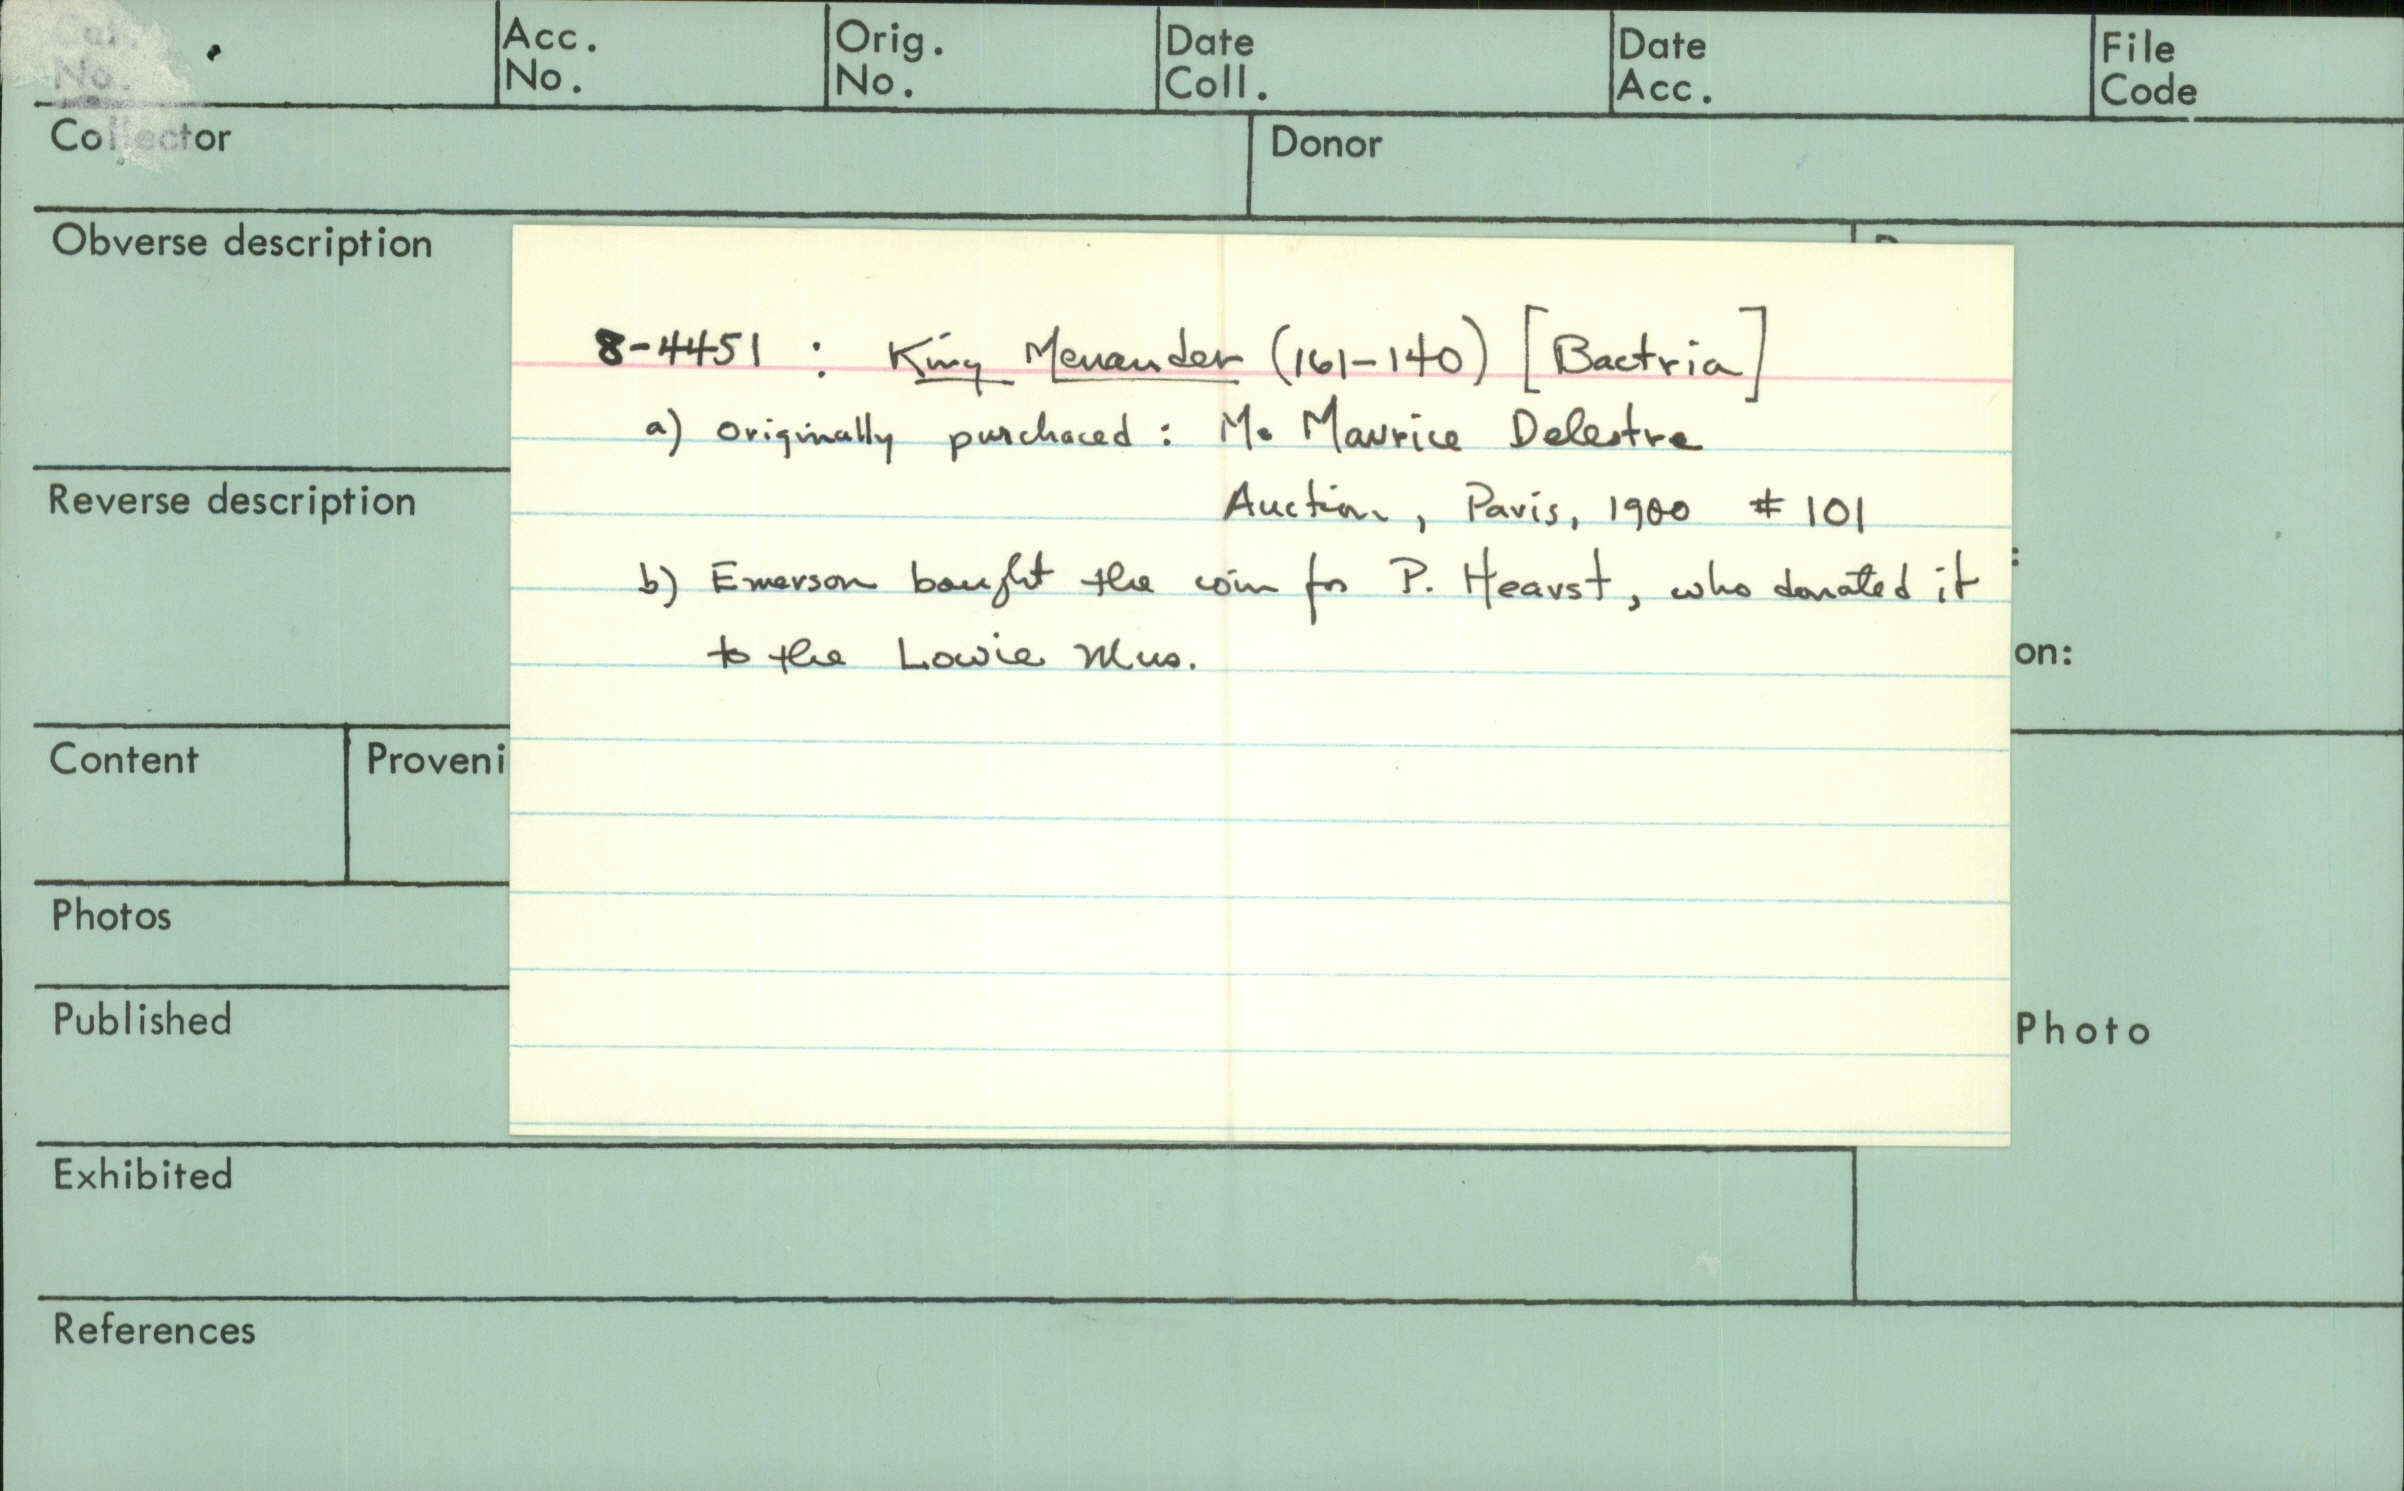 Cat. Acc. Orig. Date Date File
No. No. No. Coll. Acc. Code
Collector Donor
Obverse description
8-4451 : King Menander (161-140) [Bactria]
a) originally purchaced : M. Maurice Delestre
Auction, Paris, 1900 # 101
Reverse description
b) Emerson bought the coin for P. Hearst, who donated it
to the Lowie Mus.
on:
Content Proveni
Photos
Published
Photo
Exhibited
References